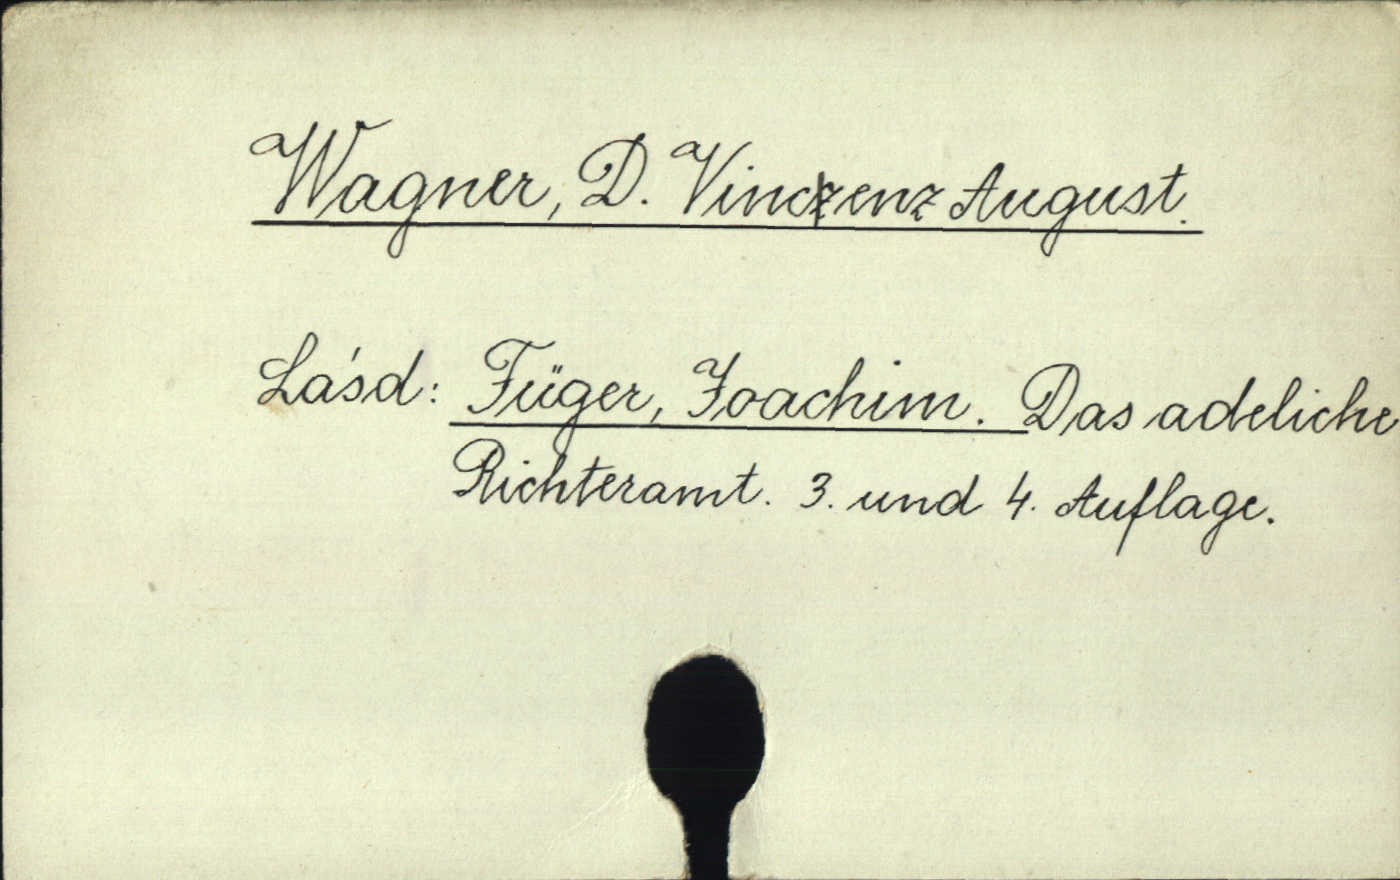 Wagner, D. Vinczenz August.
Lásd: Füger, Joachim. Das adeliche
Richteramt. 3. und 4. Auflage.